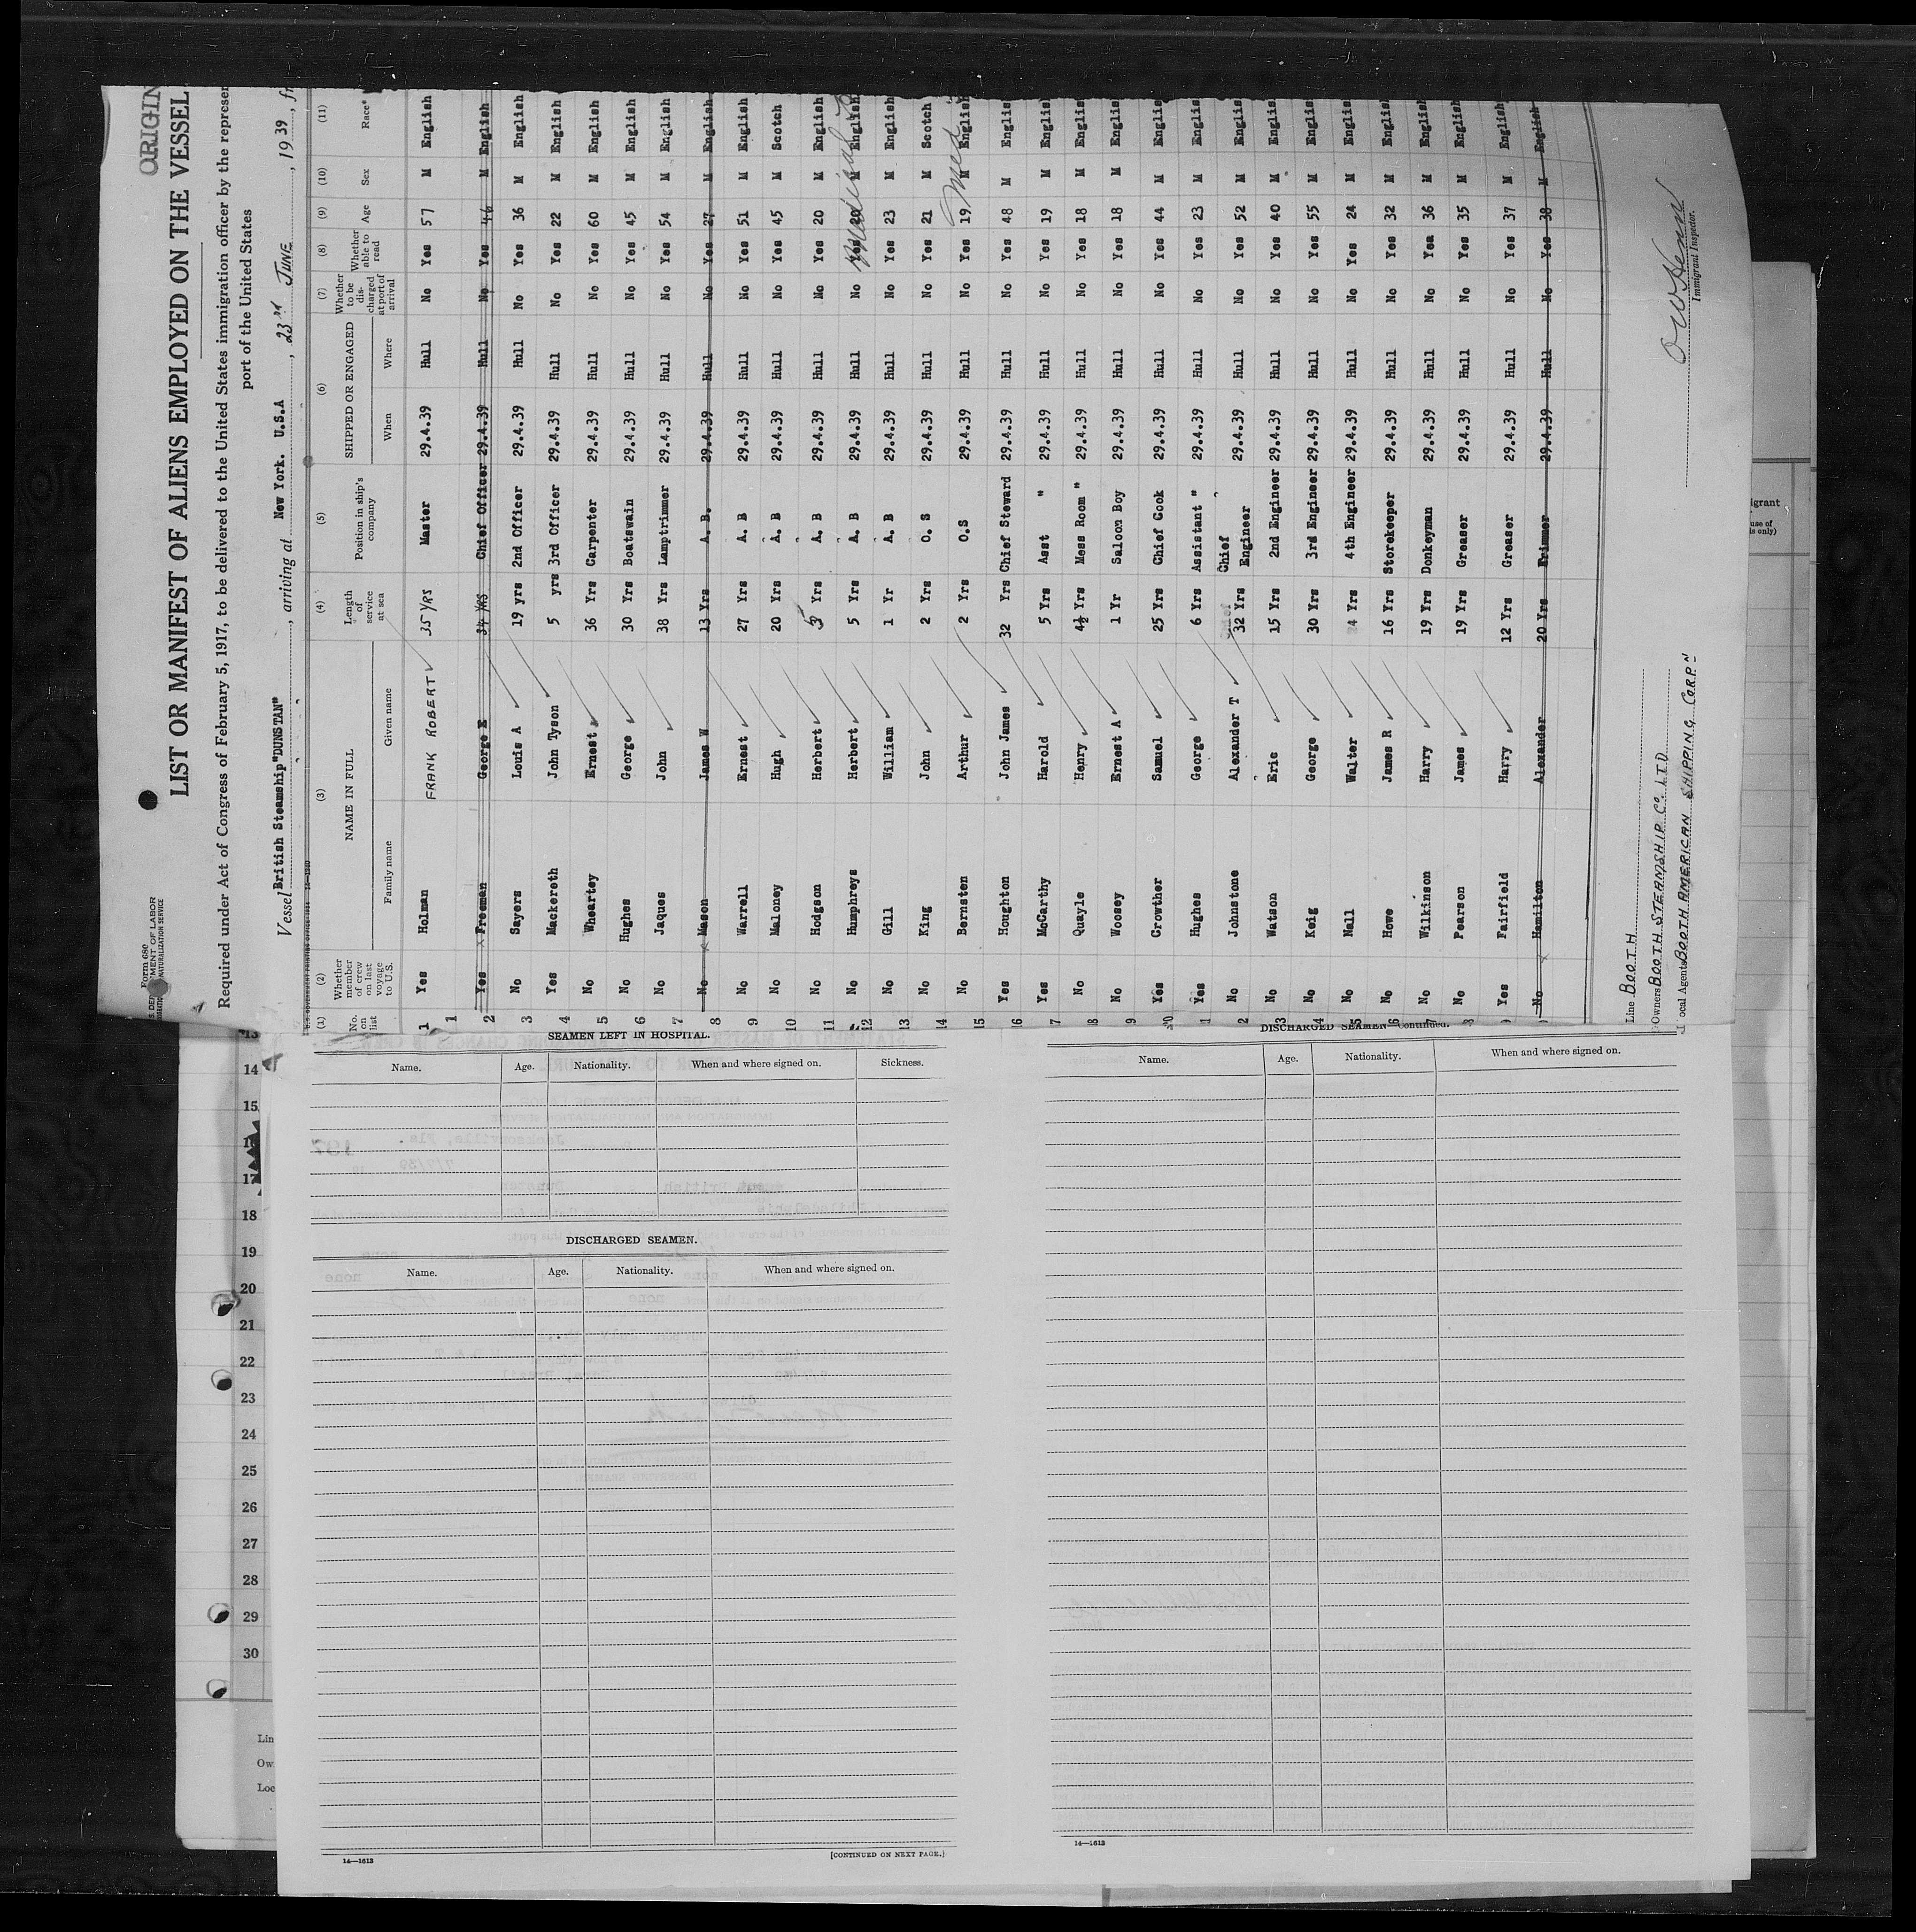 ORIGIN
Form 689
LIST OR MANIFEST OF ALIENS EMPLOYED ON THE VESSEL
Required under Act of Congress of February 5, 1917, to be delivered to the United States immigration officer by the represen
port of the United States
Vessel British Steamship "DUNSTAN", arriving at New York. U.S.A, 23rd JUNE, 1939, fr
(1) (2) (3) (4) (5) (6) (7) (8) (9) (10) (11)
No. on list Whether member of crew on last voyage to U.S. NAME IN FULL Family name Given name Length of service at sea Position in ship's company SHIPPED OR ENGAGED When Where Whether to be discharged at port of arrival Whether able to read Age Sex Race*
1 Yes Holman FRANK ROBERT 35 YRS Master 29.4.39 Hull No Yes 57 M English
1
2 Yes Freeman George E 34 YRS Chief Officer 29.4.39 Hull No Yes 46 M English
3 No Sayers Louis A 19 yrs 2nd Officer 29.4.39 Hull No Yes 36 M English
4 Yes Mackereth John Tyson 5 yrs 3rd Officer 29.4.39 Hull No Yes 22 M English
5 No Wheartey Ernest 36 Yrs Carpenter 29.4.39 Hull No Yes 60 M English
6 No Hughes George 30 Yrs Boatswain 29.4.39 Hull No Yes 45 M English
7 No Jaques John 38 Yrs Lamptrimmer 29.4.39 Hull No Yes 54 M English
8 No Mason James W 13 Yrs A. B. 29.4.39 Hull No Yes 27 M English
9 No Warrell Ernest 27 Yrs A. B 29.4.39 Hull No Yes 51 M English
10 No Maloney Hugh 20 Yrs A. B 29.4.39 Hull No Yes 45 M Scotch
11 No Hodgson Herbert 5 Yrs A. B 29.4.39 Hull No Yes 20 M English
12 No Humphreys Herbert 5 Yrs A. B 29.4.39 Hull No Yes 20 M English
13 No Gill William 1 Yr A. B 29.4.39 Hull No Yes 23 M English
14 No King John 2 Yrs O. S 29.4.39 Hull No Yes 21 M Scotch
15 No Bernsten Arthur 2 Yrs O.S 29.4.39 Hull No Yes 19 M English
16 Yes Houghton John James 32 Yrs Chief Steward 29.4.39 Hull No Yes 48 M Englis
7 Yes McCarthy Harold 5 Yrs Asst " 29.4.39 Hull No Yes 19 M Englis
8 No Quayle Henry 4½ Yrs Mess Room " 29.4.39 Hull No Yes 18 M Englis
9 No Woosey Ernest A 1 Yr Saloon Boy 29.4.39 Hull No Yes 18 M Englis
20 Yes Crowther Samuel 25 Yrs Chief Cook 29.4.39 Hull No Yes 44 M Englis
1 Yes Hughes George 6 Yrs Assistant " 29.4.39 Hull No Yes 23 M Englis
2 No Johnstone Alexander T 32 Yrs Chief Engineer 29.4.39 Hull No Yes 52 M Englis
3 No Watson Eric 15 Yrs 2nd Engineer 29.4.39 Hull No Yes 40 M Englis
4 No Keig George 30 Yrs 3rd Engineer 29.4.39 Hull No Yes 55 M Englis
5 No Nall Walter 4 Yrs 4th Engineer 29.4.39 Hull No Yes 24 M Englis
6 No Howe James R 16 Yrs Storekeeper 29.4.39 Hull No Yes 32 M Englis
7 No Wilkinson Harry 19 Yrs Donkeyman 29.4.39 Hull No Yea 36 M English
8 No Pearson James 19 Yrs Greaser 29.4.39 Hull No Yes 35 M English
9 Yes Fairfield Harry 12 Yrs Greaser 29.4.39 Hull No Yes 37 M English
No Hamilton Alexander 20 Yrs Trimmer 29.4.39 Hull No Yes 38 M English
Line BOOTH
Owners BOOTH STEAMSHIP Co. LTD
Local Agents BOOTH AMERICAN SHIPPING CORPN
Immigrant Inspector.
SEAMEN LEFT IN HOSPITAL.
Name. Age. Nationality. When and where signed on. Sickness.
DISCHARGED SEAMEN.
Name. Age. Nationality. When and where signed on.
14—1613
[CONTINUED ON NEXT PAGE.]
DISCHARGED SEAMEN—Continued.
Name. Age. Nationality. When and where signed on.
14—1613
13
14
15
16
17
18
19
20
21
22
23
24
25
26
27
28
29
30
Lin
Ow
Loc
igrant
use of
s only)